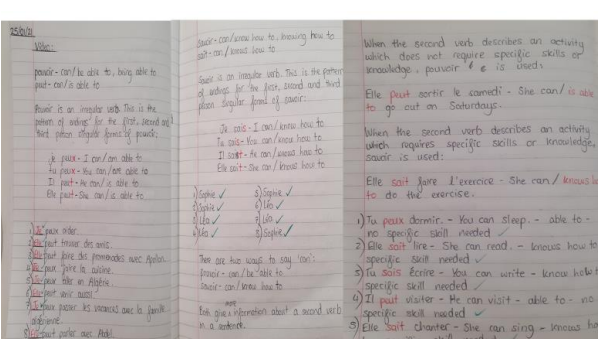 25/01/21
Vibe:
pouvoir - can/be able to, being able to
peut - can/is able to
Pouvoir is an irregular verb. This is the
pattern of endings for the first, second and
third person singular forms of pouvoir:
Je peux - I can/am able to
Tu peux - You can/are able to
Il peut - He can/is able to
Elle peut - She can/is able to
1) Je peux aider.
2) peut trouver des amis.
3) peut faire des promenades avec Apollon.
4) peux faire la cuisine.
5) peux aller en Algérie.
6) peut venir aussi!
7) Je peux passer les vacances avec la famille
8) peut parler avec Abdel.
Savoir - can/know how to, knowing how to
sait - can/knows how to
Savoir is an irregular verb. This is the pattern
of endings for the first, second and third
person singular forms of savoir:
Je sais - I can/know how to
Tu sais - You can/know how to
Il sait - He can/knows how to
Elle sait - She can/knows how to
1) Sophie ✓ 5) Sophie ✓
2) Sophie ✓ 6) Léa ✓
3) Léa ✓ 7) Léa ✓
4) Léa ✓ 8) Sophie ✓
There are two ways to say 'can':
pouvoir - can/be able to
savoir - can/know how to
Both give more information about a second verb
in a sentence.
When the second verb describes an activity
which does not require specific skills or
knowledge, pouvoir is used:
Elle peut sortir le samedi - She can/is able
to go out on Saturdays.
When the second verb describes an activity
which requires specific skills or knowledge,
savoir is used:
Elle sait faire l'exercice - She can/knows h
to do the exercise.
1) Tu peux dormir. - You can sleep. - able to -
no specific skill needed ✓
2) Elle sait lire - She can read. - knows how to
specific skill needed ✓
3) Tu sais écrire - You can write - know how t
specific skill needed ✓
4) Il peut visiter - He can visit - able to - no
specific skill needed ✓
5) Elle sait chanter - She can sing - knows ho